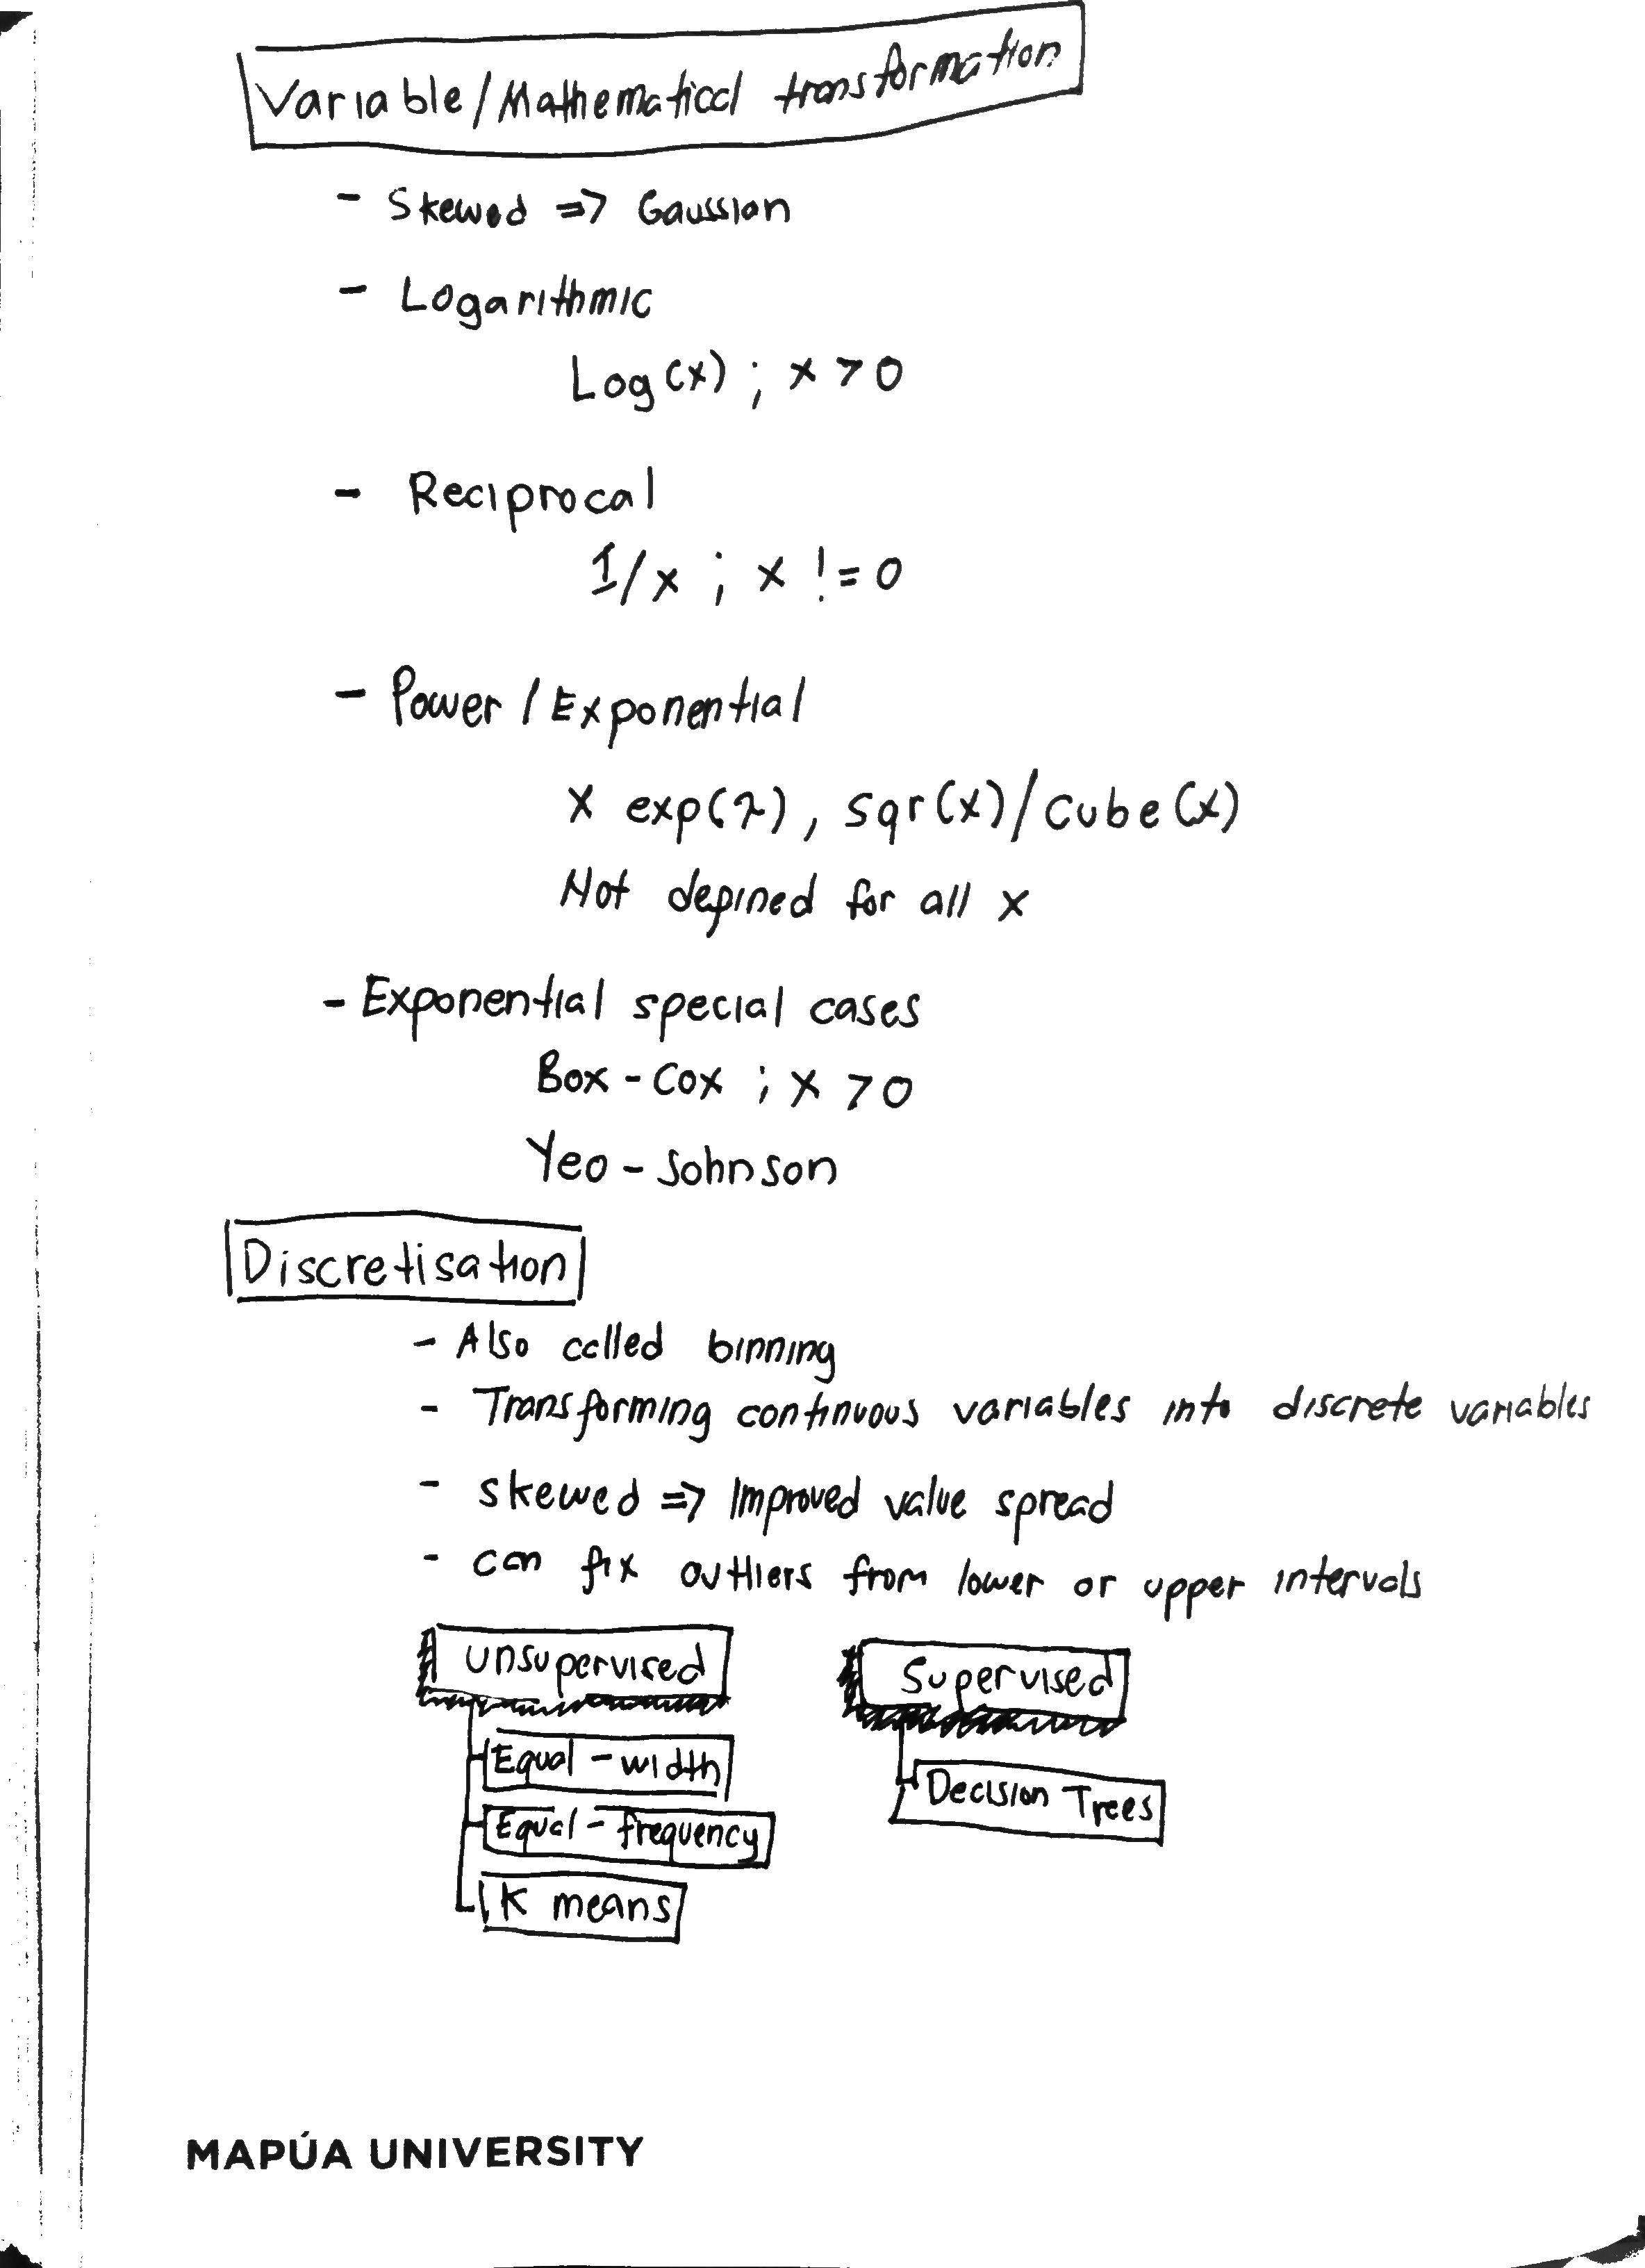 Variable/Mathematical transformation
- Skewed => Gaussian
- Logarithmic
Log(x) ; x > 0
- Reciprocal
1/x ; x != 0
- Power / Exponential
X exp(λ), sqr(x)/cube(x)
Not defined for all x
- Exponential special cases
Box-Cox ; x > 0
Yeo-Johnson
Discretisation
- Also called binning
- Transforming continuous variables into discrete variables
- skewed => Improved value spread
- can fix outliers from lower or upper intervals
Unsupervised Supervised
Equal-width
Decision Trees
Equal-frequency
K means
MAPÚA UNIVERSITY